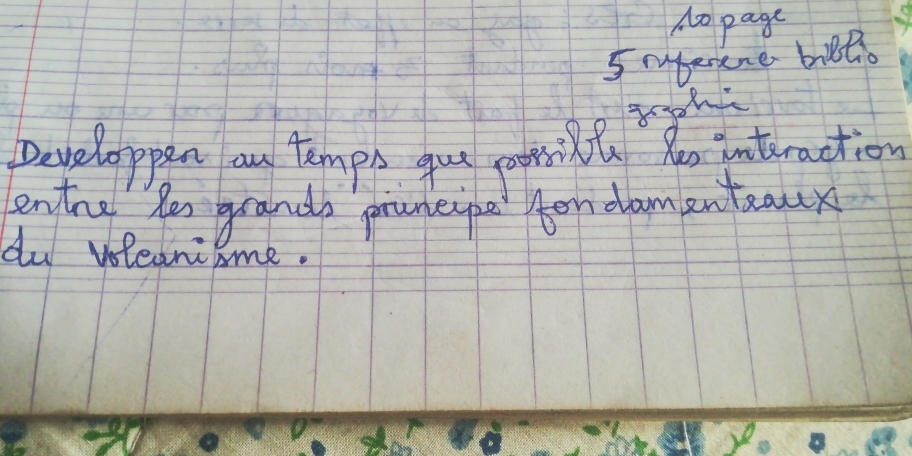 10 page
5 reference biblio
graphie
Developper au temps que possible les interaction
entre les grands principe fondamenteaux
du volcanisme.